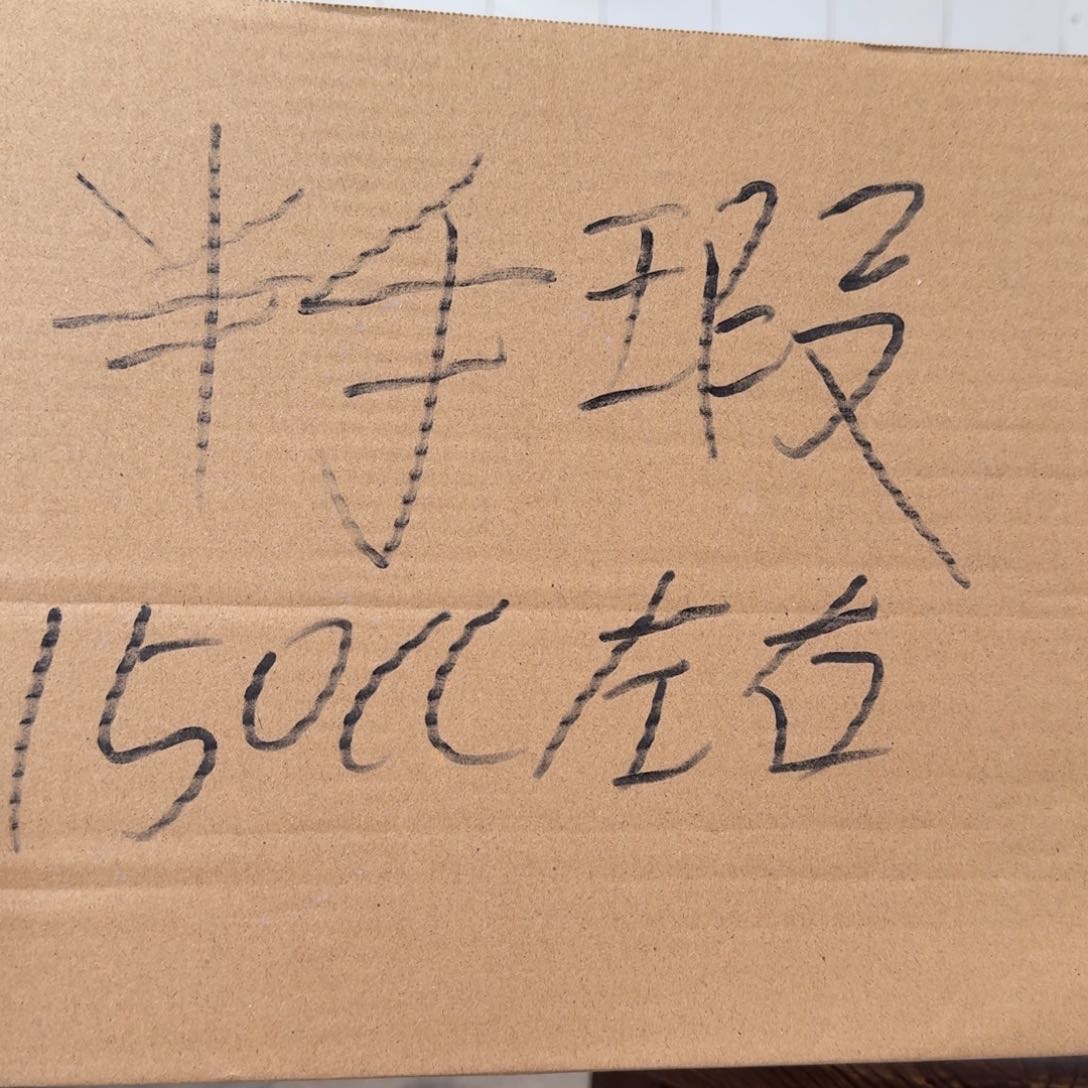 半手瑕
150CC左右